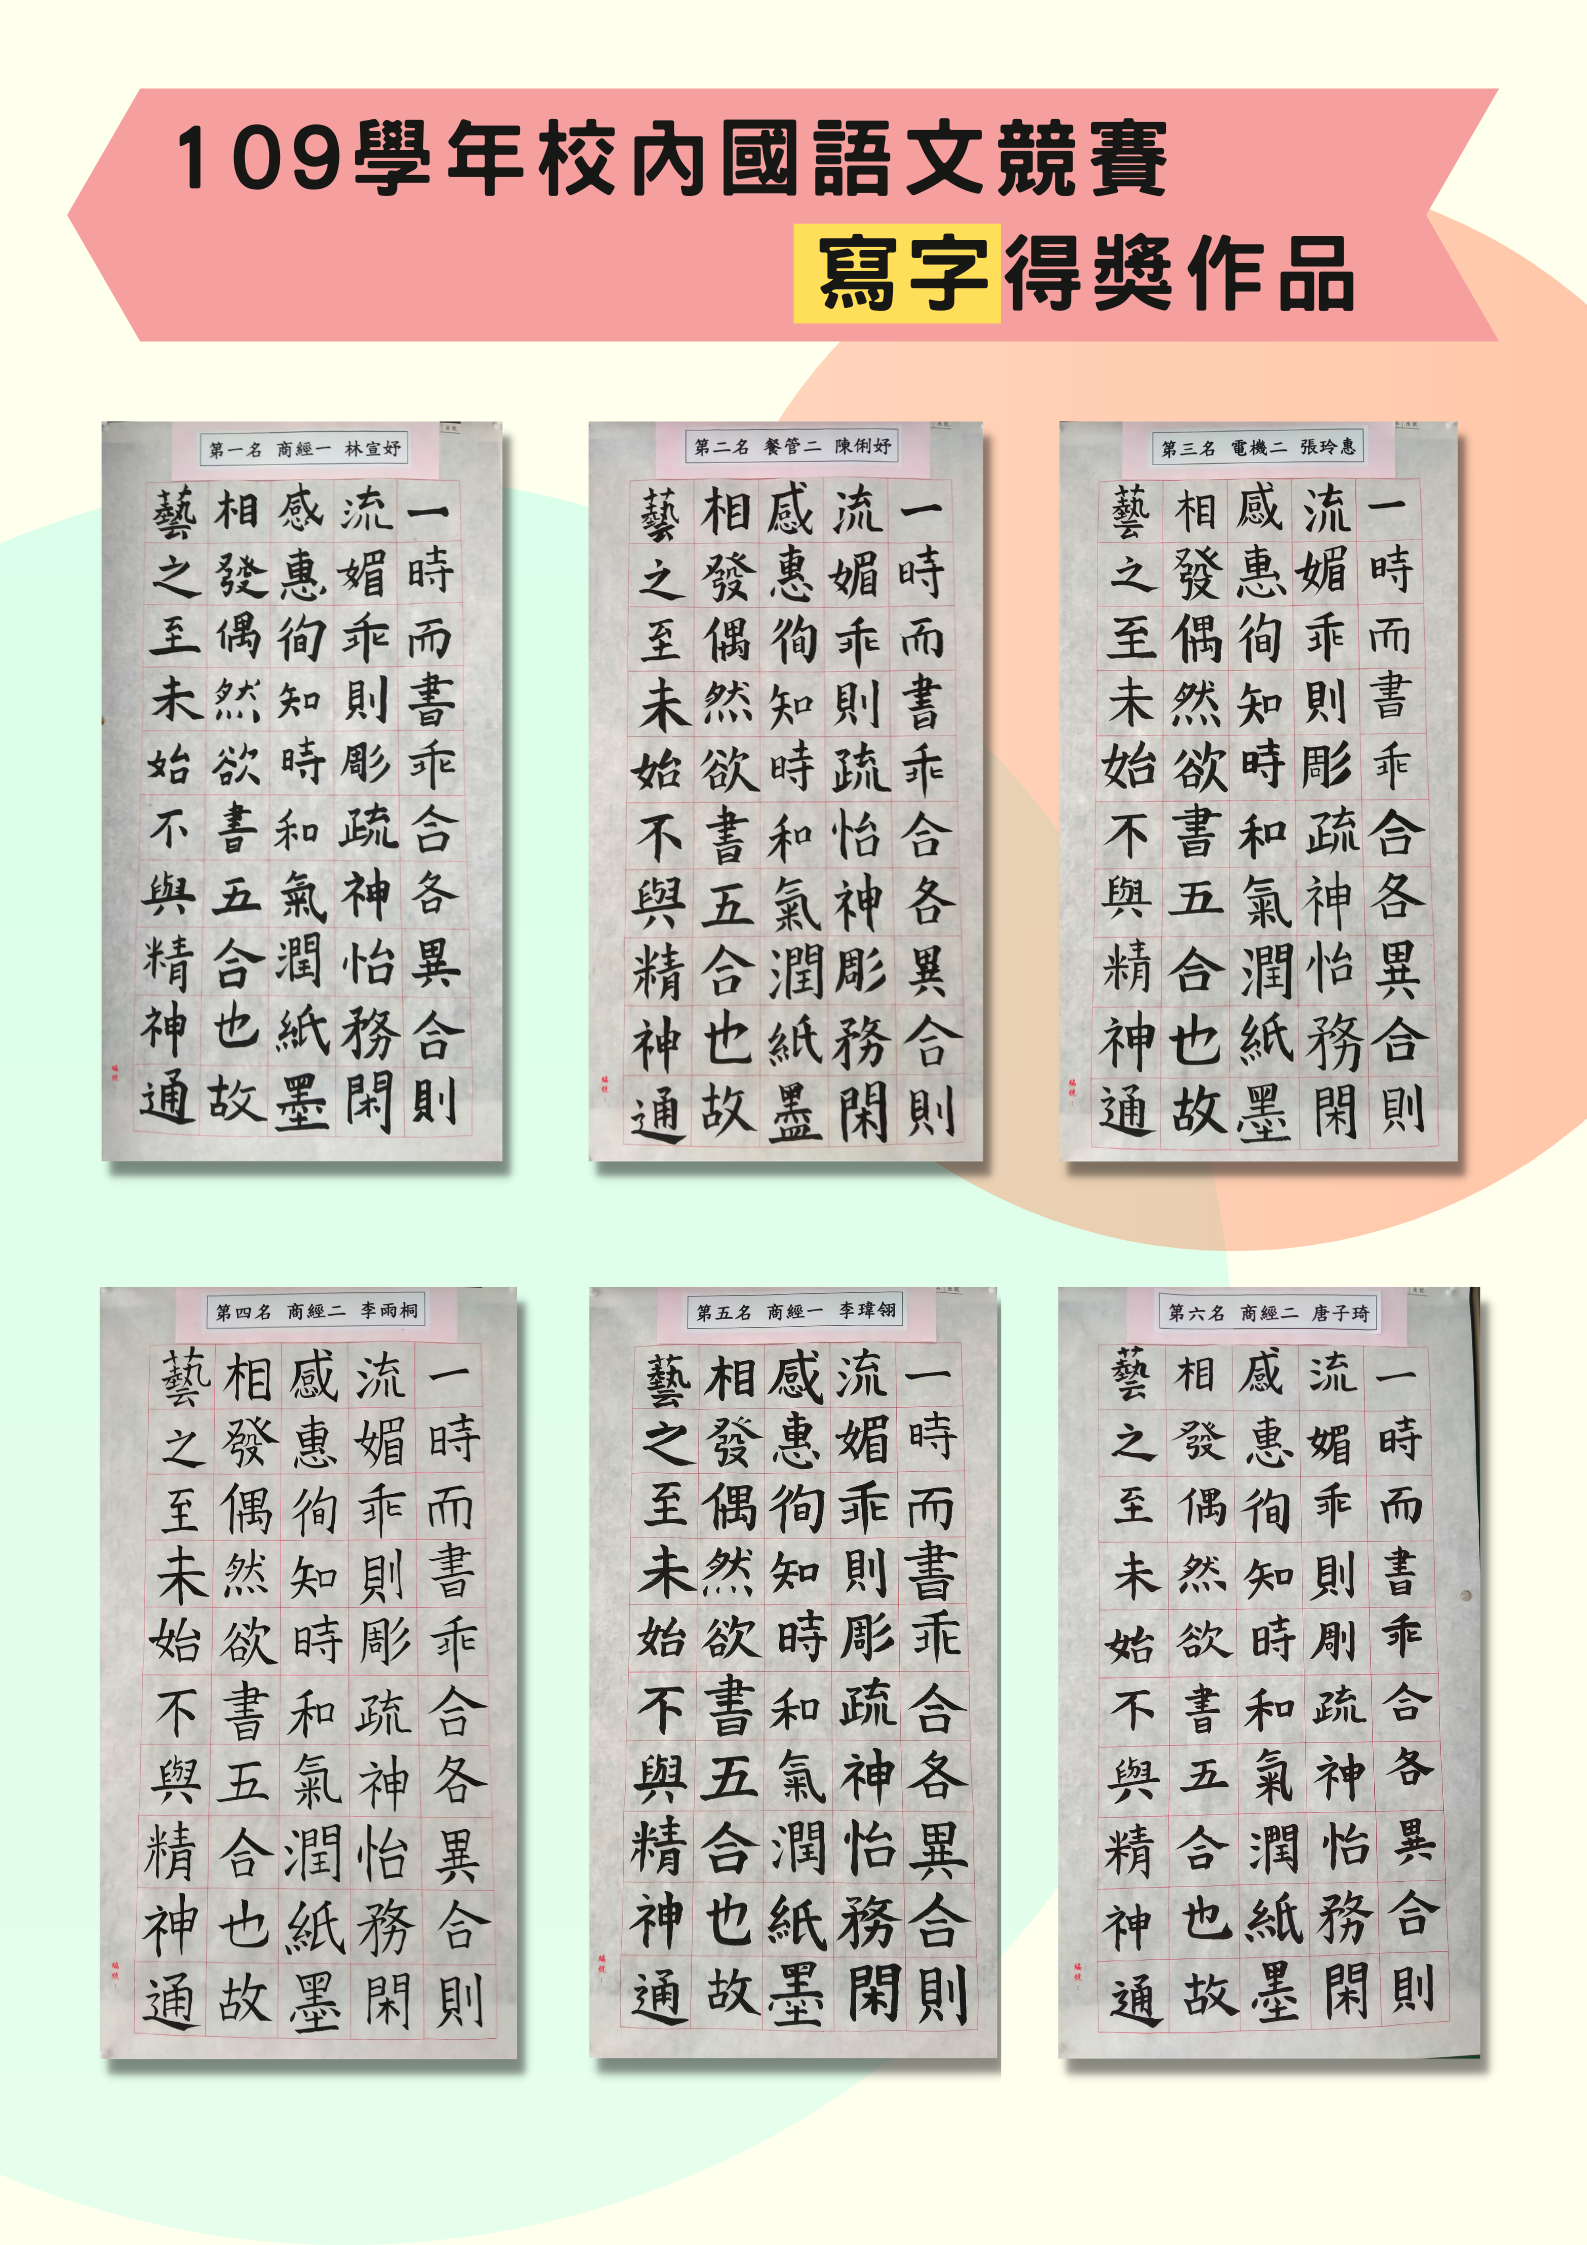 109學年校內國語文競賽
寫字得獎作品
第一名 商經一 林宣妤
一時而書乖合各異合則
流媚乖則彫疏神怡務閑
感惠徇知時和氣潤紙墨
相發偶然欲書五合也故
藝之至未始不與精神通
編號:
第二名 餐管二 陳俐妤
一時而書乖合各異合則
流媚乖則疏怡神彫務閑
感惠徇知時和氣潤紙
相發偶然欲書五合也故
藝之至未始不與精神通
編號:
第三名 電機二 張玲惠
一時而書乖合各異合則
流媚乖則彫疏神怡務閑
感惠徇知時和氣潤紙墨
相發偶然欲書五合也故
藝之至未始不與精神通
編號:
第四名 商經二 李雨桐
一時而書乖合各異合則
流媚乖則彫疏神怡務閑
感惠徇知時和氣潤紙墨
相發偶然欲書五合也故
藝之至未始不與精神通
編號:
第五名 商經一 李瑋翎
一時而書乖合各異合則
流媚乖則彫疏神怡務閑
感惠徇知時和氣潤紙墨
相發偶然欲書五合也故
藝之至未始不與精神通
編號:
第六名 商經二 唐子琦
一時而書乖合各異合則
流媚乖則疏神怡務閑
感惠徇知時和氣潤紙墨
相發偶然欲書五合也故
藝之至未始不與精神通
編號: